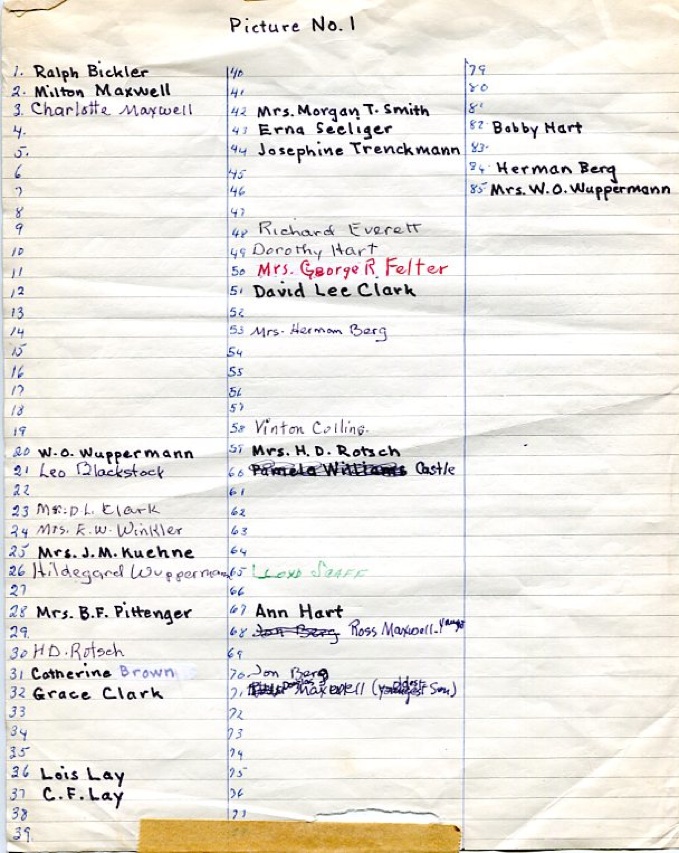 Picture No. 1
1. Ralph Bickler
2. Milton Maxwell
3. Charlotte Maxwell
4.
5.
6
7
8
9
10
11
12
13
14
15
16
17
18
19
20 W.O. Wuppermann
21 Leo Blackstock
22
23 Mrs. D.L. Clark
24 Mrs. E.W. Winkler
25 Mrs. J.M. Kuehne
26 Hildegard Wuppermann
27
28 Mrs. B.F. Pittenger
29.
30 H.D. Rotsch
31 Catherine Brown
32 Grace Clark
33
34
35
36 Lois Lay
37 C.F. Lay
38
39.
40
41
42 Mrs. Morgan T. Smith
43 Erna Seeliger
44 Josephine Trenckmann
45
46
47
48 Richard Everett
49 Dorothy Hart
50 Mrs. George R. Felter
51 David Lee Clark
52
53 Mrs. Herman Berg
54
55
56
57
58 Vinton Collins
59 Mrs. H.D. Rotsch
60 Pamela Williams Castle
61
62
63
64
65 Lloyd
66
67 Ann Hart
68 Jon Berg Ross Maxwell
69
70 Jon Berg
71 Maxwell (oldest Son)
72
73
74
75
76
77
79
80
81
82 Bobby Hart
83
84 Herman Berg
85 Mrs. W.O. Wuppermann